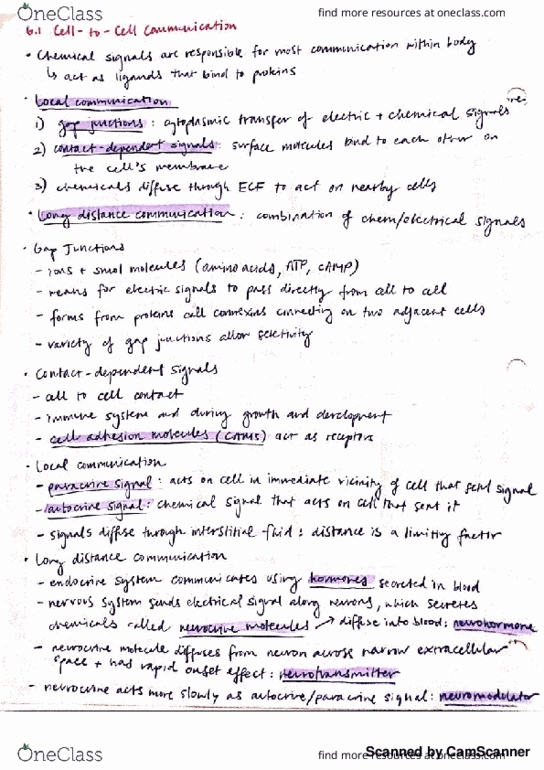 OneClass
find more resources at oneclass.com
6.1 Cell-to-Cell Communication
• Chemical signals are responsible for most communication within body
↳ act as ligands that bind to proteins
• Local communication
1) gap junctions: cytoplasmic transfer of electric + chemical signals
2) contact-dependent signals: surface molecules bind to each other on
the cell's membrane
3) chemicals diffuse through ECF to act on nearby cells
• Long distance communication: combination of chem/electrical signals
• Gap Junctions
- ions + small molecules (amino acids, ATP, cAMP)
- means for electric signals to pass directly from cell to cell
- forms from proteins call connexins connecting on two adjacent cells
- variety of gap junctions allow selectivity
• Contact-dependent signals
- cell to cell contact
- immune system and during growth and development
- cell adhesion molecules (CAMs) act as receptors
• Local communication
- paracrine signal: acts on cell in immediate vicinity of cell that sent signal
- autocrine signal: chemical signal that acts on cell that sent it
- signals diffuse through interstitial fluid: distance is a limiting factor
• Long distance communication
- endocrine system communicates using hormones secreted in blood
- nervous system sends electrical signal along neurons, which secretes
chemicals called neurocrine molecules → diffuse into blood: neurohormone
- neurocrine molecule diffuses from neuron across narrow extracellular
space + has rapid onset effect: neurotransmitter
- neurocrine acts more slowly as autocrine/paracrine signal: neuromodulator
OneClass
find more resources at oneclass.com
Scanned by CamScanner